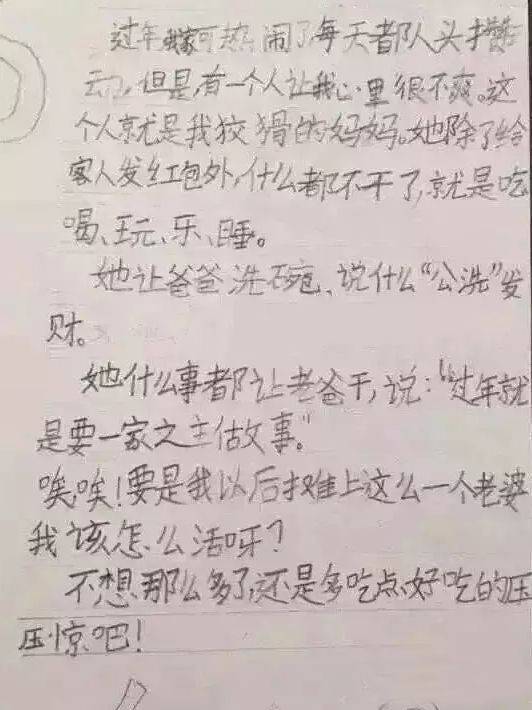 过年我家可热闹了,每天都人头攒
云,但是,有一个人让我心里很不爽。这
个人就是我狡猾的妈妈。她除了给
客人发红包外,什么都不干了,就是吃
喝、玩、乐、睡。
她让爸爸洗碗、说什么“公洗”发
财。
她什么事都让老爸干,说:“过年就
是要一家之主做事。”
唉,唉!要是我以后摊上这么一个老婆
我该怎么活呀?
不想那么多了,还是多吃点好吃的压
压惊吧!